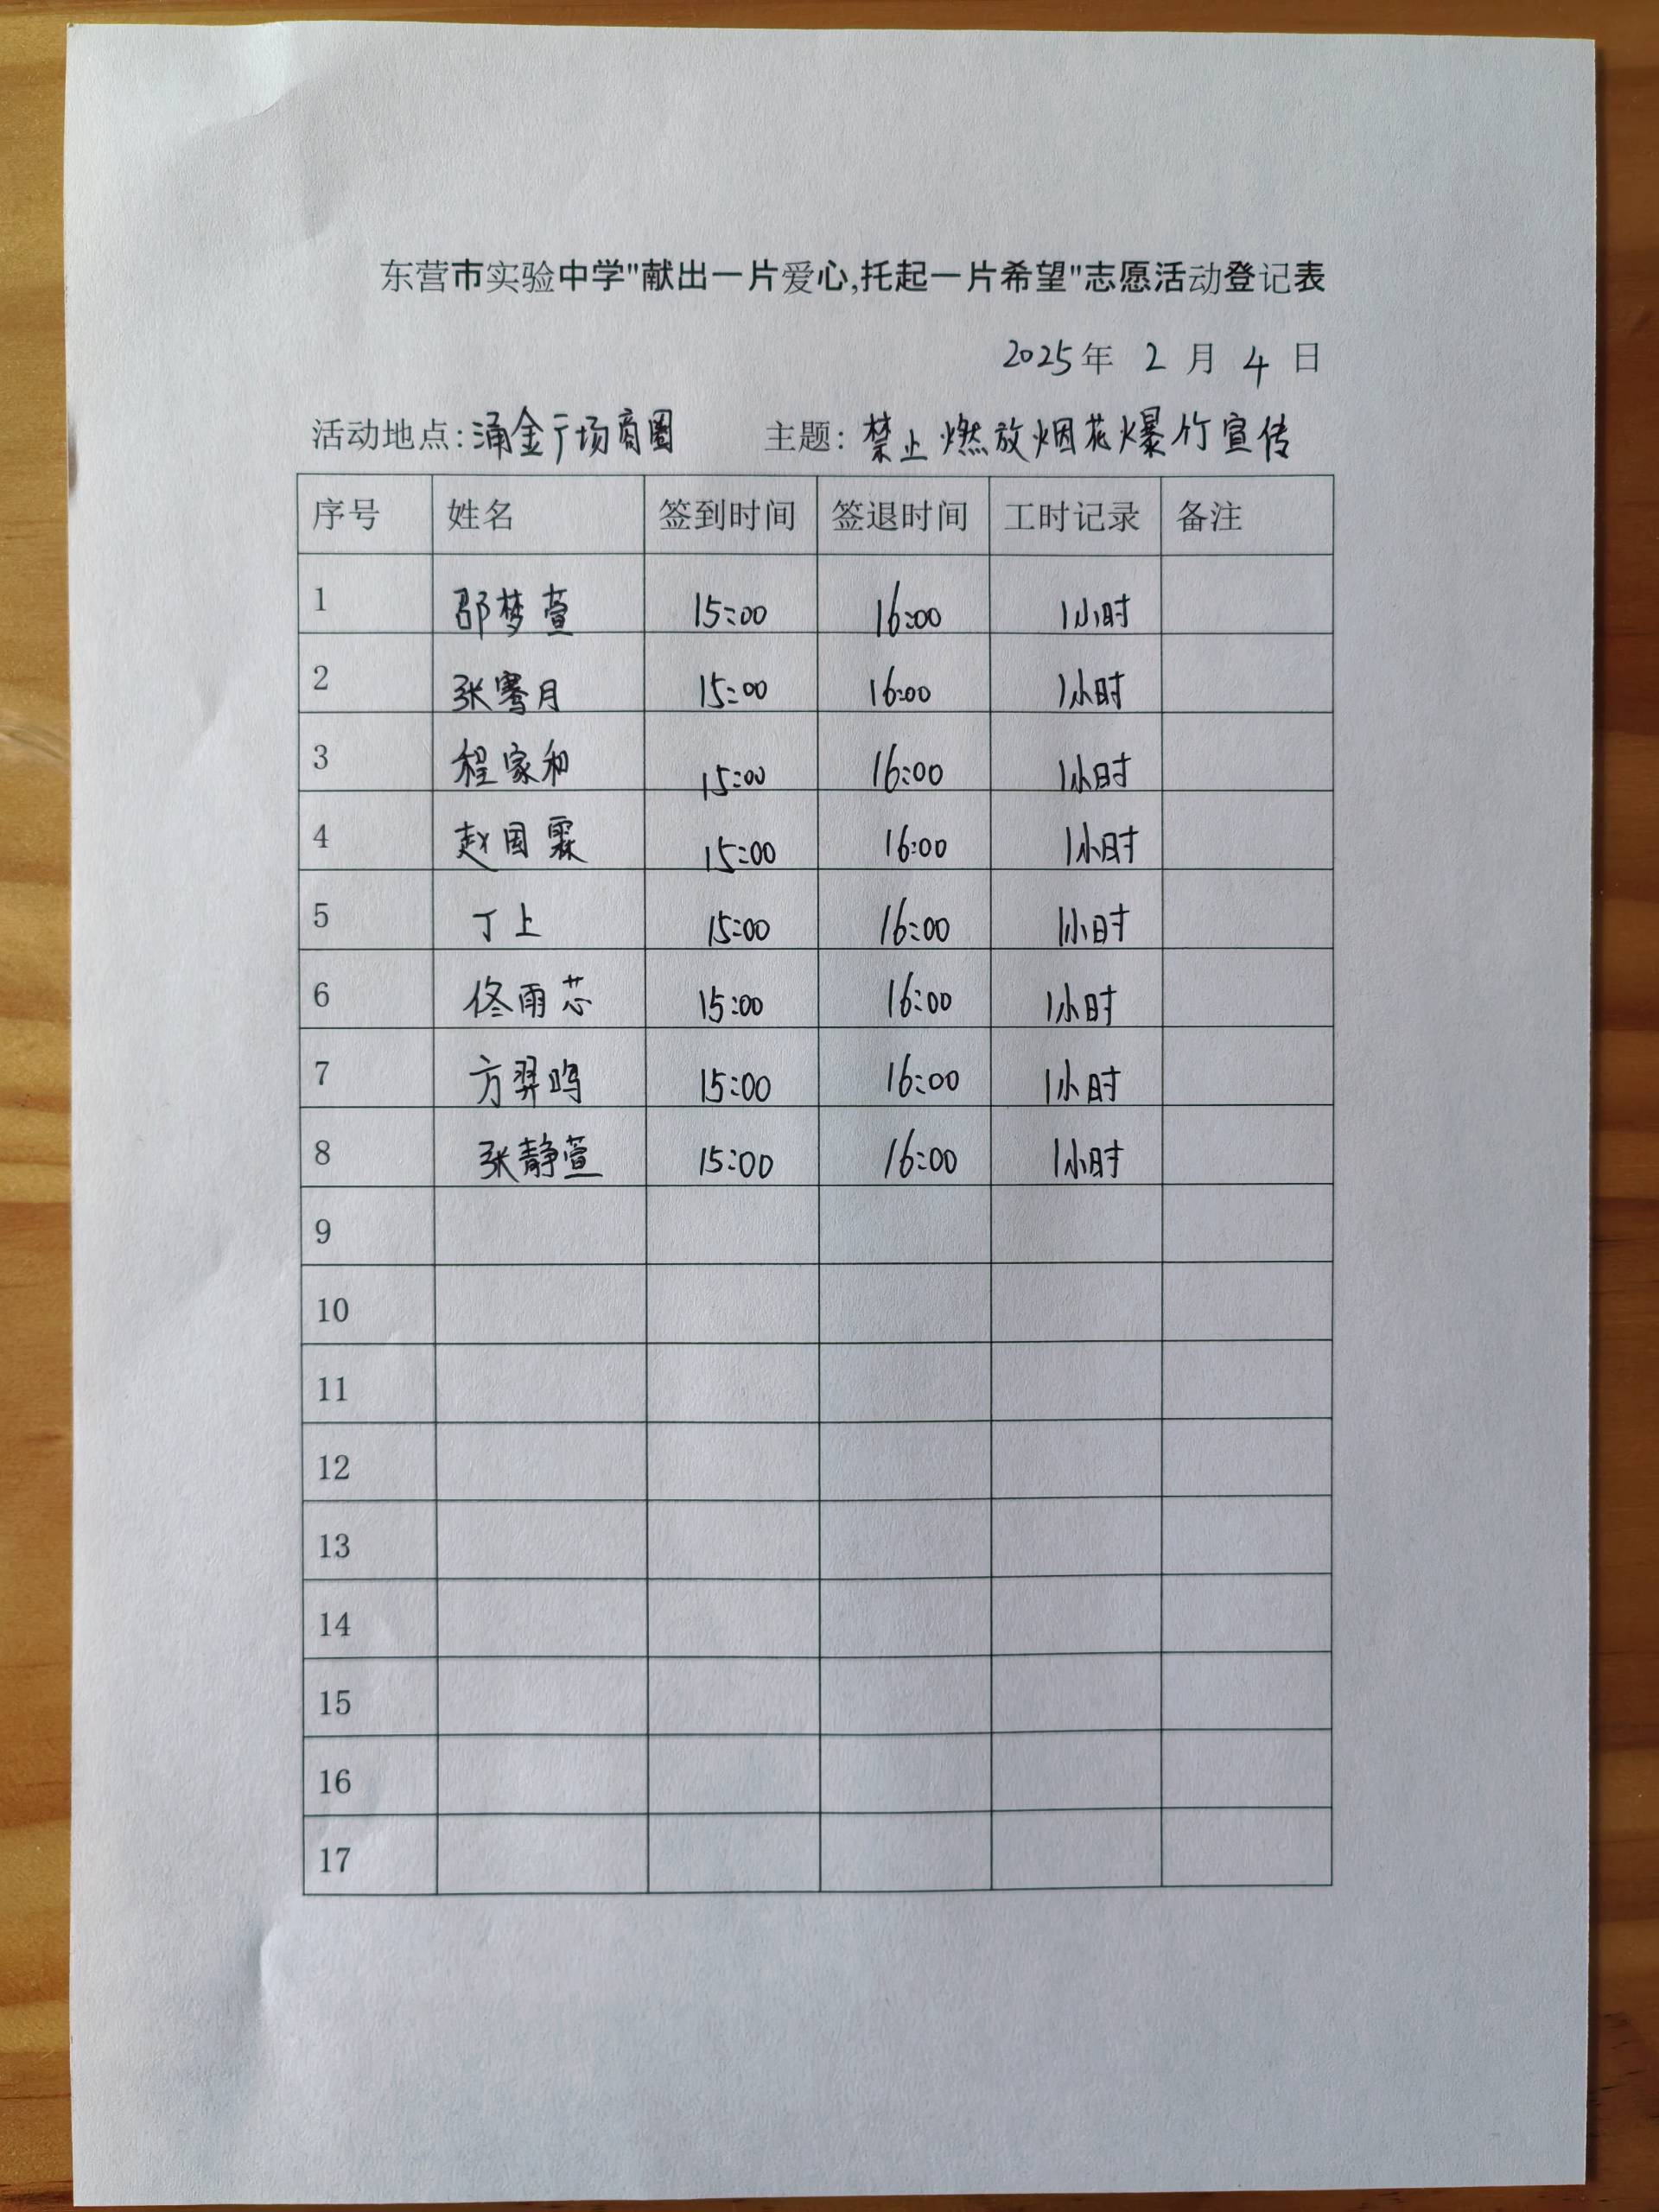 东营市实验中学"献出一片爱心,托起一片希望"志愿活动登记表
2025年 2 月 4 日
活动地点:涌金广场商圈 主题:禁止燃放烟花爆竹宣传
序号 姓名 签到时间 签退时间 工时记录 备注
1 邵梦萱 15:00 16:00 1小时
2 张骞月 15:00 16:00 1小时
3 程家和 15:00 16:00 1小时
4 赵国霖 15:00 16:00 1小时
5 丁上 15:00 16:00 1小时
6 佟雨芯 15:00 16:00 1小时
7 方羿鸣 15:00 16:00 1小时
8 张静萱 15:00 16:00 1小时
9
10
11
12
13
14
15
16
17